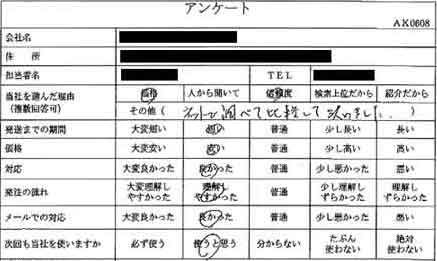 アンケート
AX0608
会社名
住 所
担当者名 TEL
当社を選んだ理由 価格 人から聞いて 信頼度 検索上位だから 紹介だから
(複数回答可) その他( ネットで調べて比較して決めました。 )
発送までの期間 大変短い 短い 普通 少し長い 長い
価格 大変安い 安い 普通 少し高い 高い
対応 大変良かった 良かった 普通 少し悪かった 悪い
発注の流れ 大変理解しやすかった 理解しやすかった 普通 少し理解しずらかった 理解しずらかった
メールでの対応 大変良かった 良かった 普通 少し悪かった 悪い
次回も当社を使いますか 必ず使う 使うと思う 分からない たぶん使わない 絶対使わない